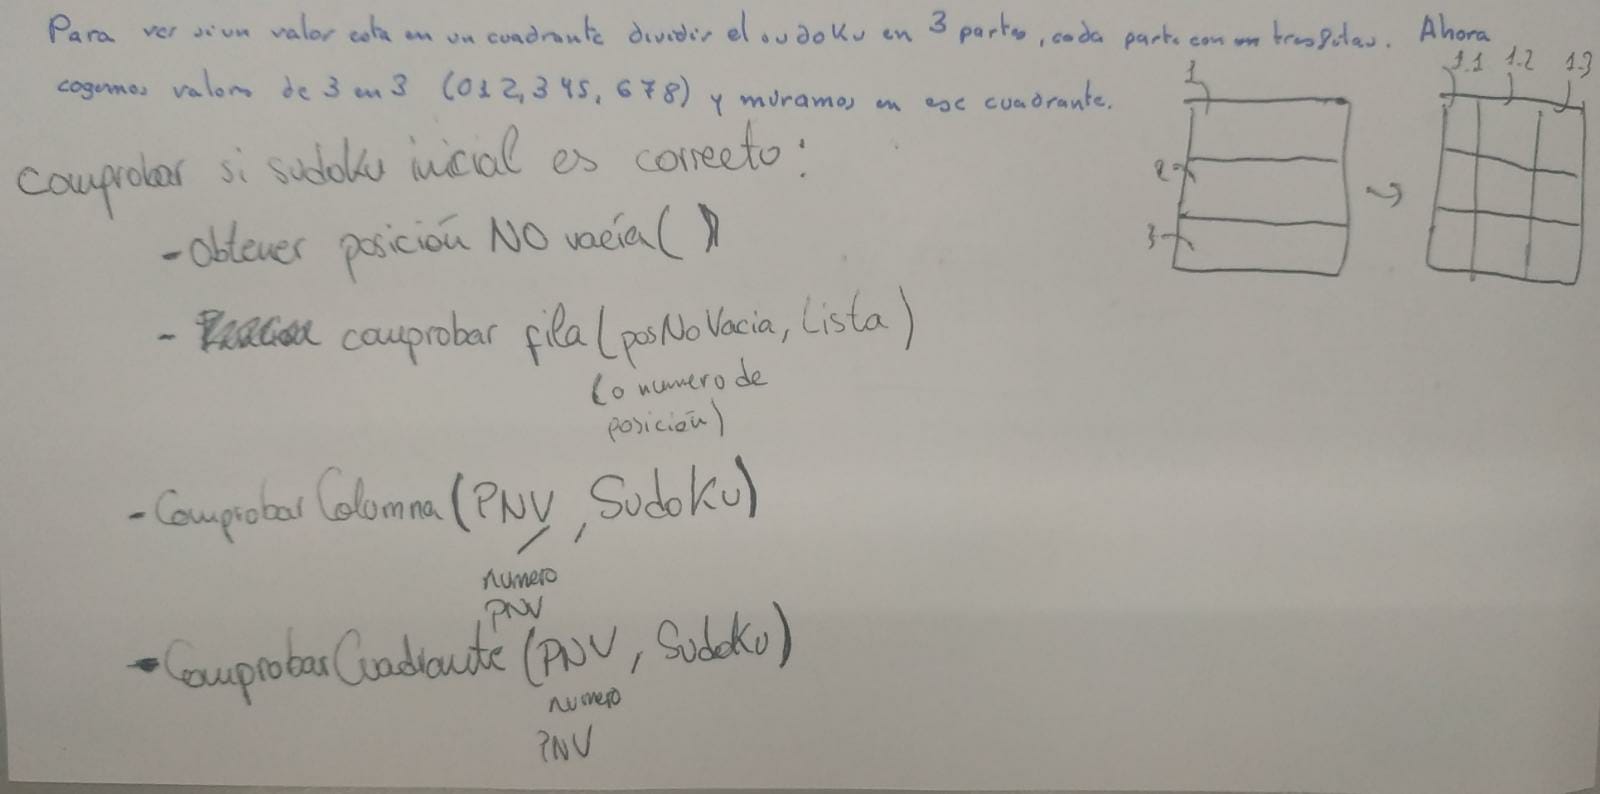 Para ver si un valor esta en un cuadrante dividir el sudoku en 3 partes, cada parte con tres filas. Ahora
cogemos valores de 3 en 3 (012, 345, 678) y miramos en ese cuadrante.
1
2
3
1.1 1.2 1.3
Comprobar si sudoku inicial es correcto:
- Obtener posición NO vacía()
- comprobar fila (posNoVacia, Lista)
(o numero de
posición)
- Comprobar Columna (PNV, Sudoku)
numero
PNV
- Comprobar Cuadrante (PNV, Sudoku)
numero
PNV